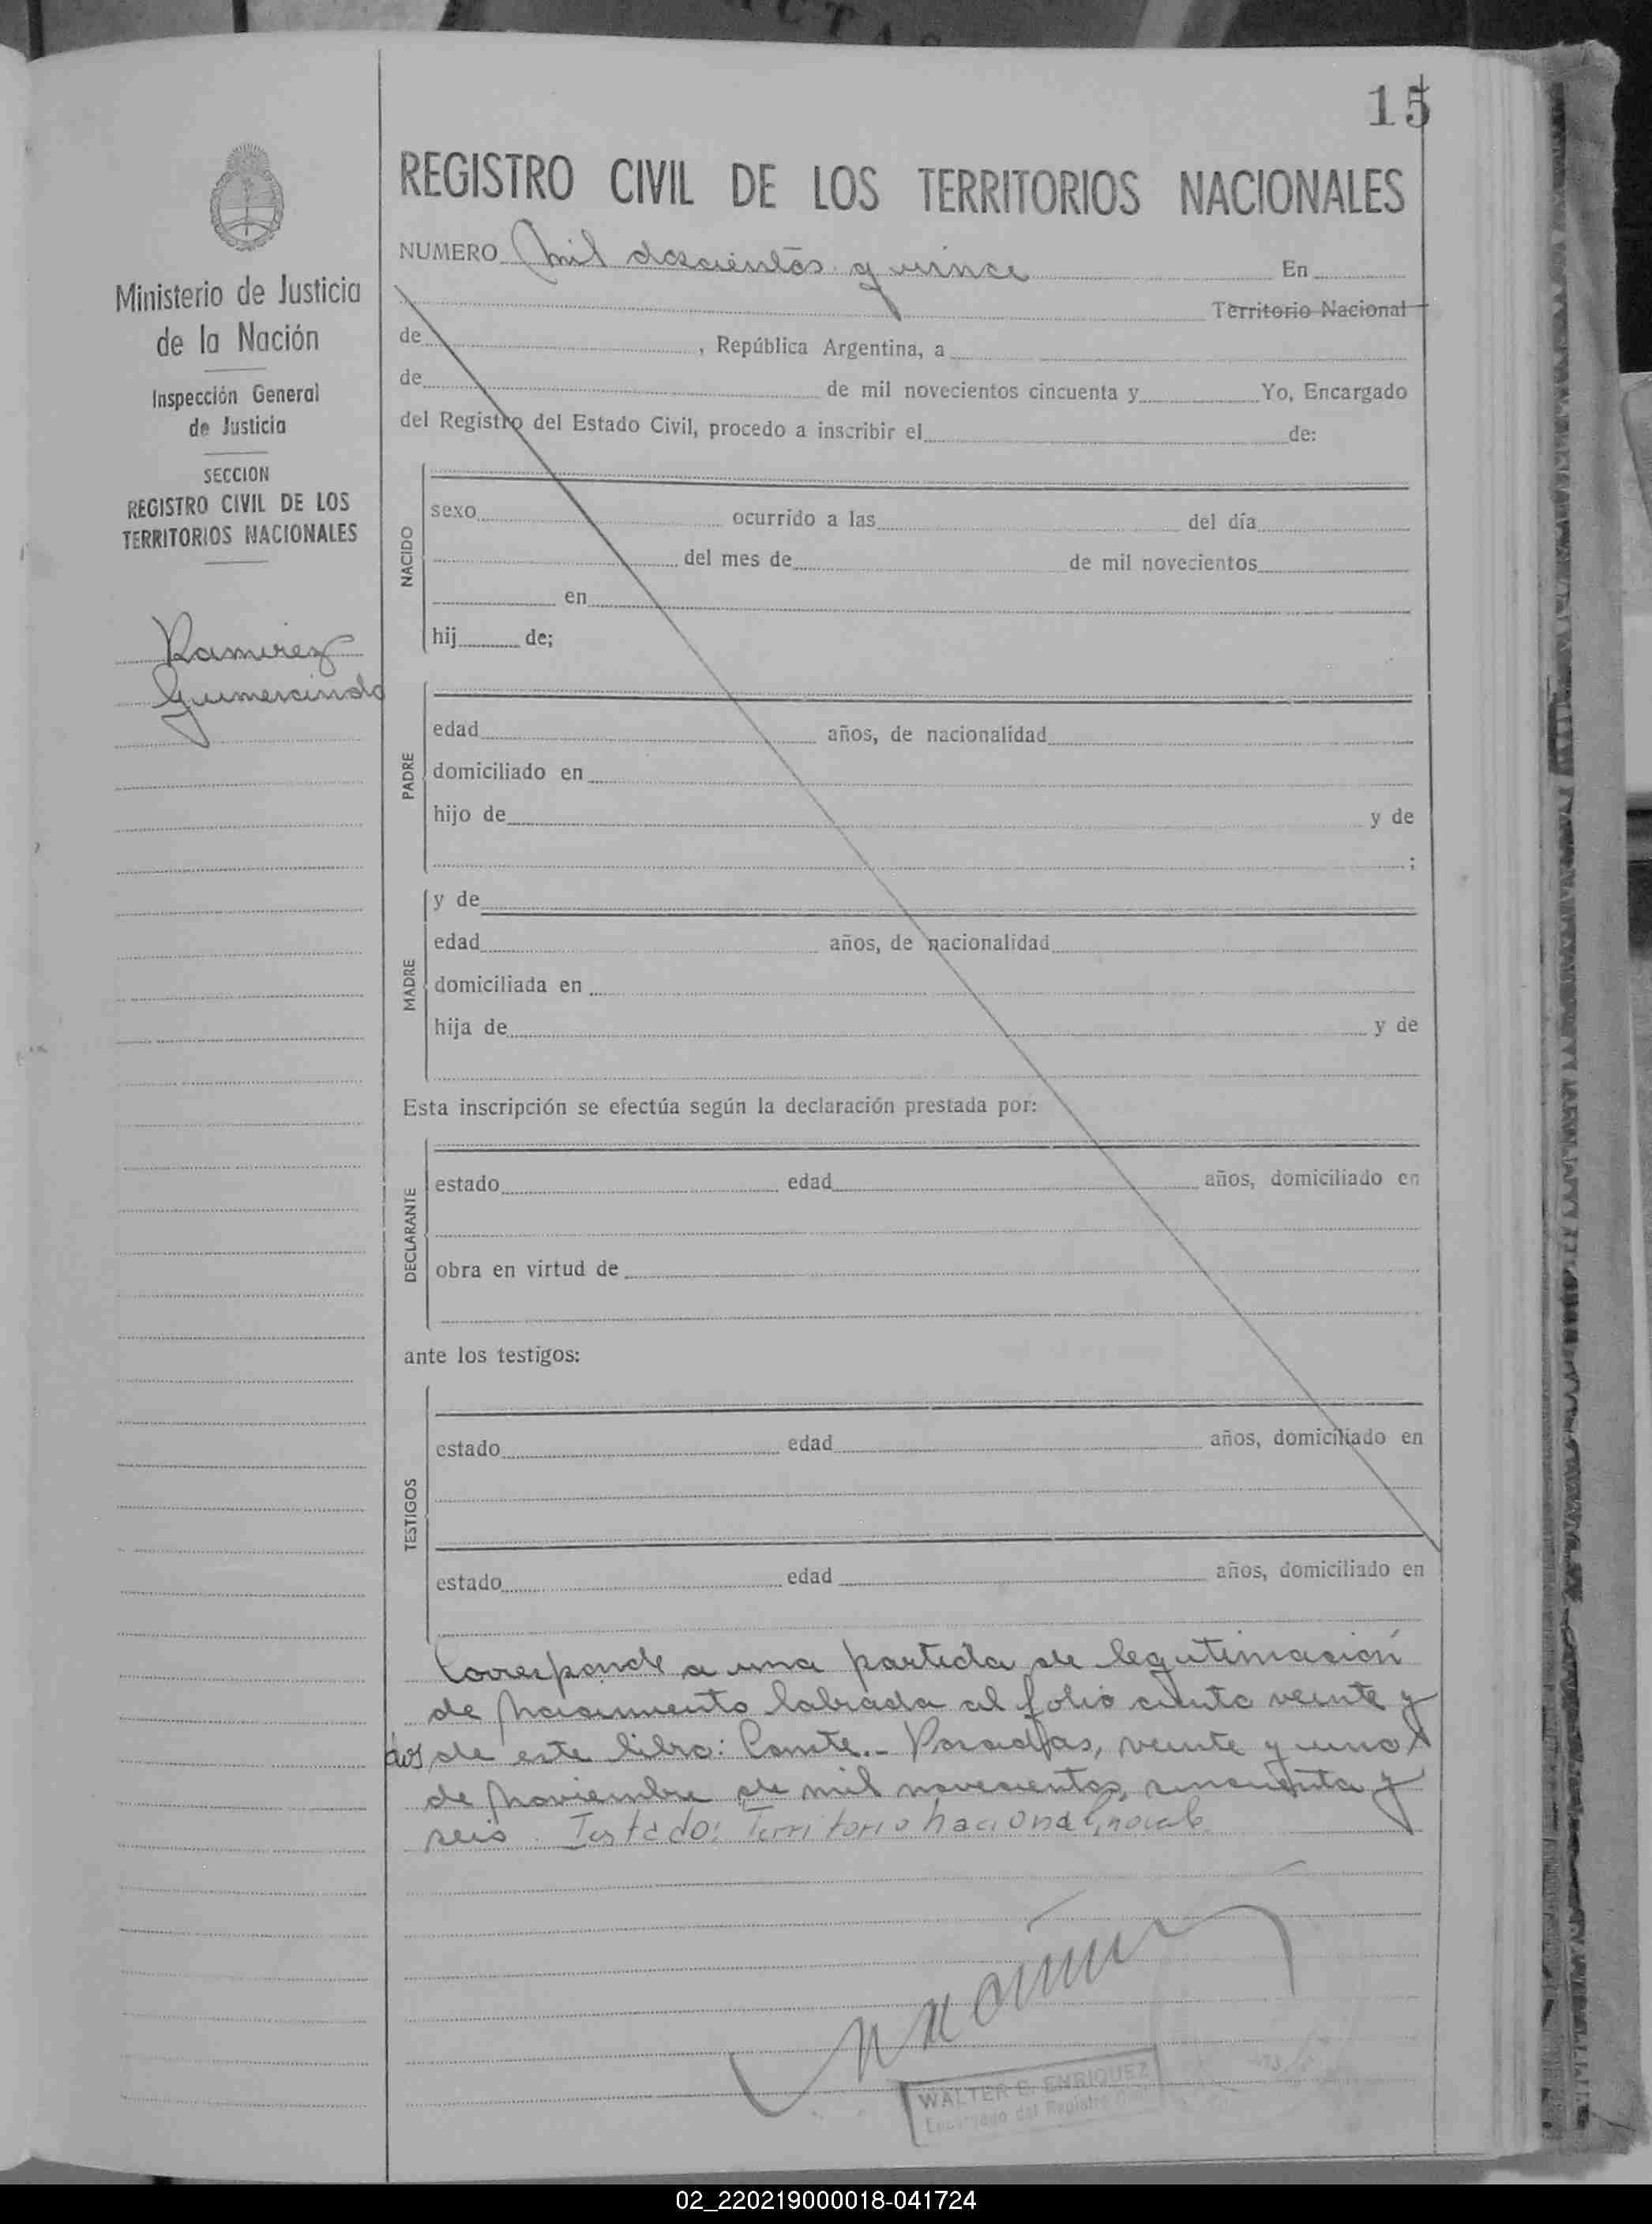 CTAS
15
REGISTRO CIVIL DE LOS TERRITORIOS NACIONALES
NUMERO mil doscientos y quince En
Territorio Nacional
de , República Argentina, a
de de mil novecientos cincuenta y Yo, Encargado
del Registro del Estado Civil, procedo a inscribir el de:
Ministerio de Justicia
de la Nación
Inspección General
de Justicia
SECCION
REGISTRO CIVIL DE LOS
TERRITORIOS NACIONALES
Ramirez
Gumercindo
NACIDO
sexo ocurrido a las del día
del mes de de mil novecientos
en
hij de;
PADRE
edad años, de nacionalidad
domiciliado en
hijo de y de
;
MADRE
y de
edad años, de nacionalidad
domiciliada en
hija de y de
Esta inscripción se efectúa según la declaración prestada por:
DECLARANTE
estado edad años, domiciliado en
obra en virtud de
ante los testigos:
TESTIGOS
estado edad años, domiciliado en
estado edad años, domiciliado en
Corresponde a una partida de legitimación
de nacimiento labrada al folio ciento veinte y
dos de este libro: Conste.- Posadas, veinte y uno
de noviembre de mil novecientos cincuenta y
seis. Testado: Territorio nacional,
WALTER E. ENRIQUEZ
Encargado del Registro
02_220219000018-041724